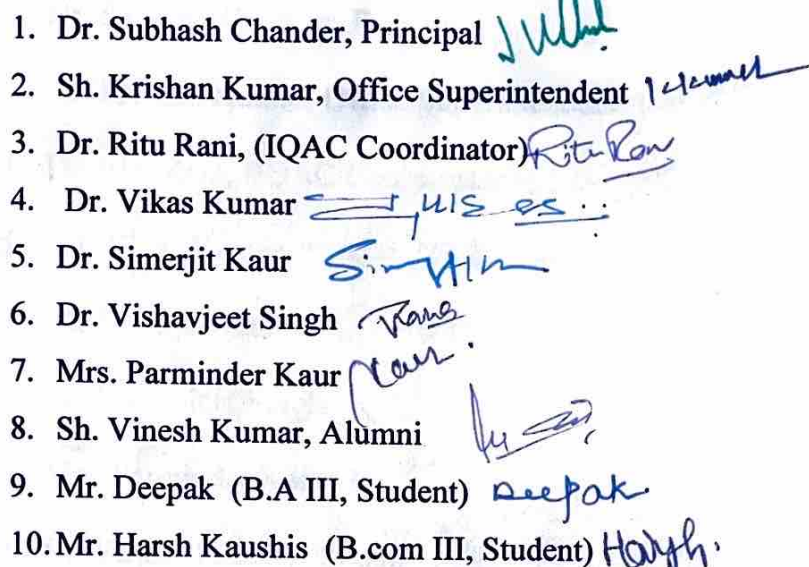 1. Dr. Subhash Chander, Principal
2. Sh. Krishan Kumar, Office Superintendent
3. Dr. Ritu Rani, (IQAC Coordinator) Ritu Rani
4. Dr. Vikas Kumar
5. Dr. Simerjit Kaur
6. Dr. Vishavjeet Singh
7. Mrs. Parminder Kaur
8. Sh. Vinesh Kumar, Alumni
9. Mr. Deepak (B.A III, Student) Deepak
10. Mr. Harsh Kaushis (B.com III, Student) Harsh.